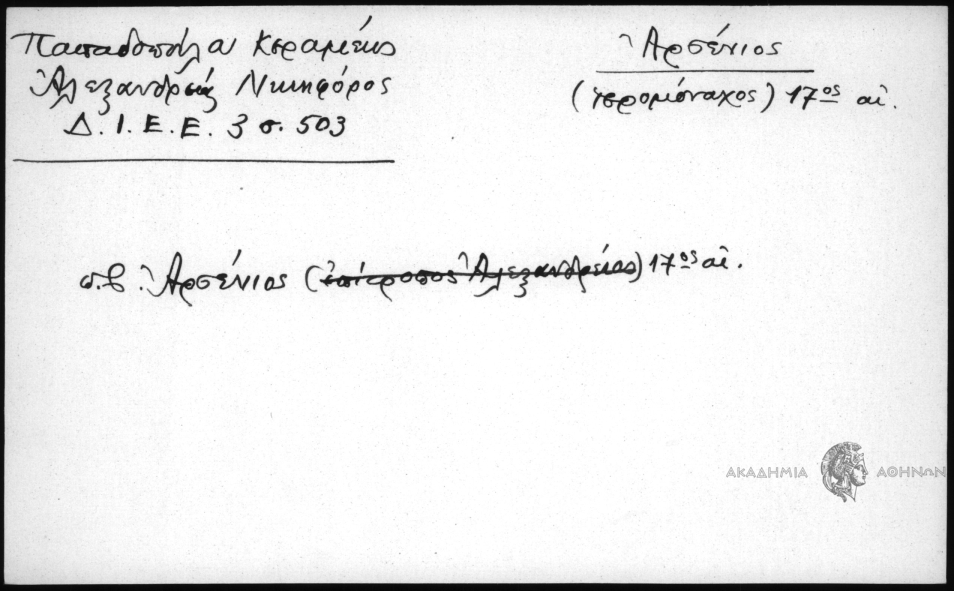 Παπαδοπούλου Κεραμέως
Ἀλεξανδρείας Νικηφόρος
Δ. Ι. Ε. Ε. 3 σ. 503
Ἀρσένιος
(ἱερομόναχος) 17ος αἰ.
σ.β. Ἀρσένιος (ἐπίτροπος Ἀλεξανδρείας) 17ος αἰ.
ΑΚΑΔΗΜΙΑ ΑΘΗΝΩΝ